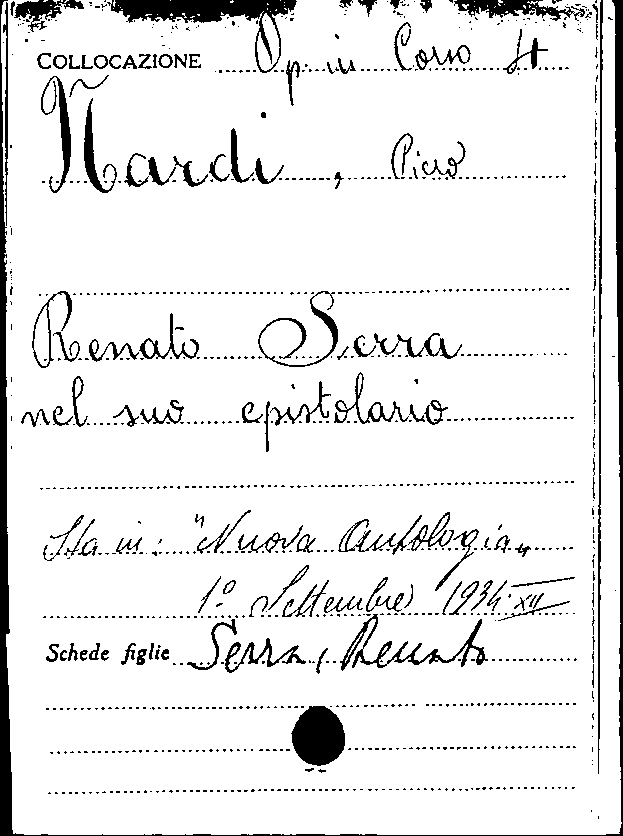 COLLOCAZIONE Op. in Corso 4
Nardi, Piero
Renato Serra
nel suo epistolario
Sta in: "Nuova Antologia„
1º Settembre 1934-XII
Schede figlie Serra, Renato